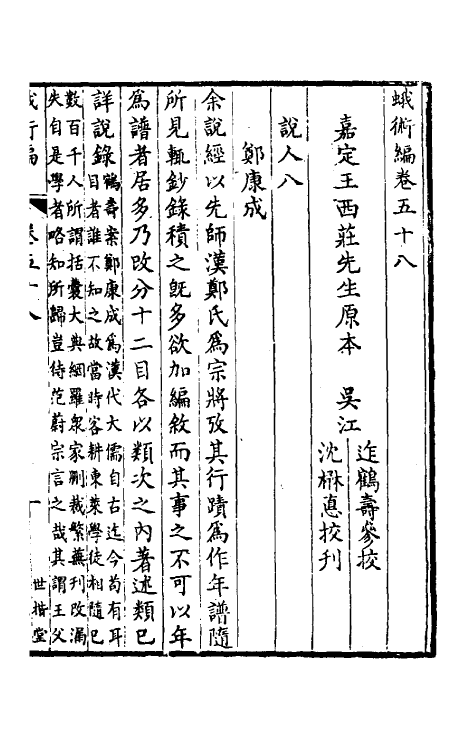 蛾術編卷五十八
嘉定王西莊先生原本　吳江
迮鶴壽參挍
沈楙悳挍刊
說人八
鄭康成
余說經以先師漢鄭氏爲宗將攷其行蹟爲作年譜隨
所見輒鈔錄積之旣多欲加編敘而其事之不可以年
爲譜者居多乃改分十二目各以類次之內著述類已
詳說錄
鶴壽案鄭康成爲漢代大儒自古迄今苟有耳
目者誰不知之故當時客耕東萊學徒相隨已
數百千人所謂括囊大典網羅衆家刪裁繁蕪刊改漏
失自是學者略知所歸豈待范蔚宗言之哉其謂王父
蛾術編　卷五十八　一　世楷堂